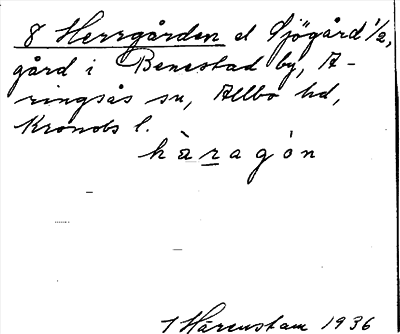 8 Herrgården el Sjögård 1/2,
gård i Benestad by, A-
ringsås sn, Allbo hd,
Kronobs l.
hàragón
1 Hårenstam 1936